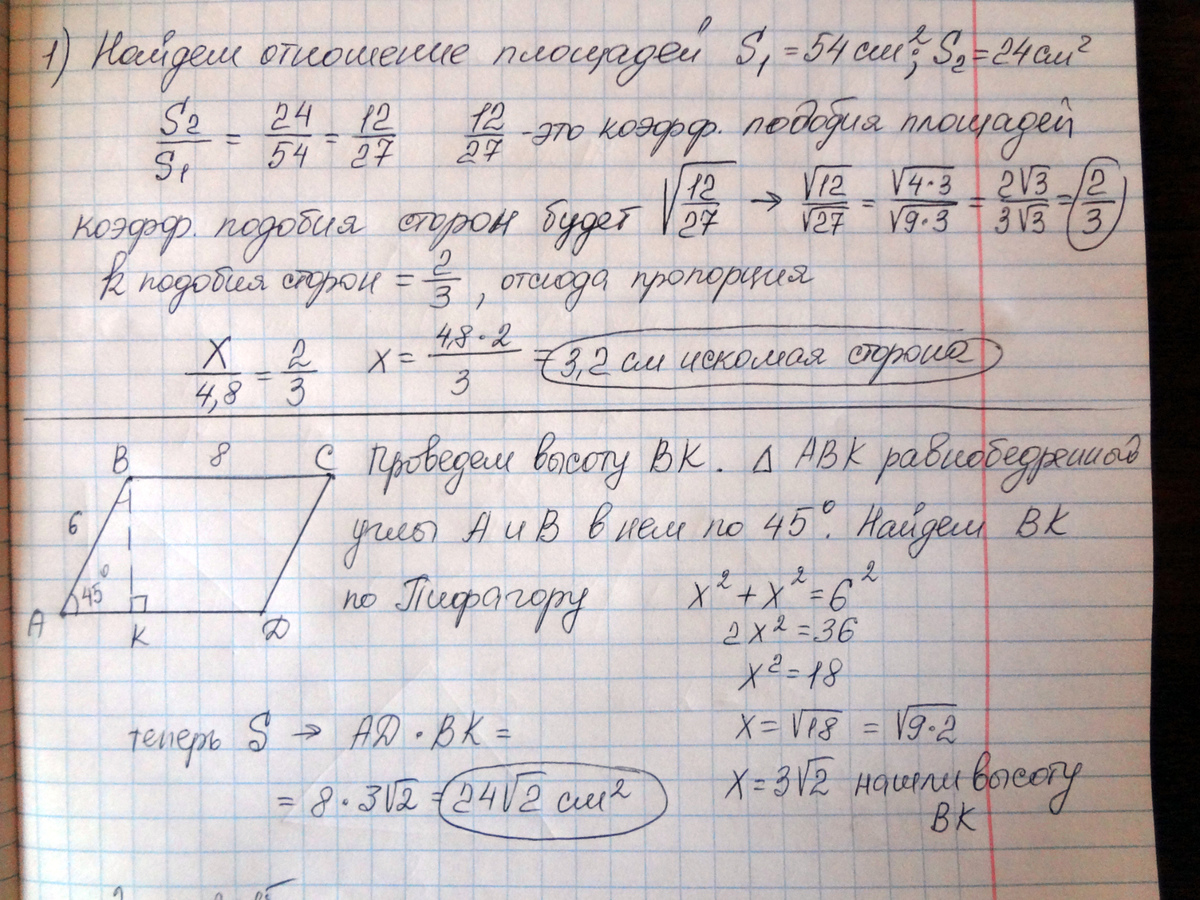 1) Найдем отношение площадей S₁ = 54 см²; S₂ = 24 см²
S₂/S₁ = 24/54 = 12/27 12/27 - это коэфф. подобия площадей
коэфф. подобия сторон будет √(12/27) → √12/√27 = √(4·3)/√(9·3) = 2√3/3√3 = 2/3
k подобия сторон = 2/3, отсюда пропорция
x/4,8 = 2/3 x = 4,8·2/3 = 3,2 см искомая сторона
B 8 C Проведем высоту BK. Δ ABK равнобедренный
6 углы A и B в нем по 45°. Найдем BK
45° по Пифагору x² + x² = 6²
A K D 2x² = 36
x² = 18
теперь S → AD · BK = x = √18 = √(9·2)
= 8 · 3√2 = 24√2 см² x = 3√2 нашли высоту
BK